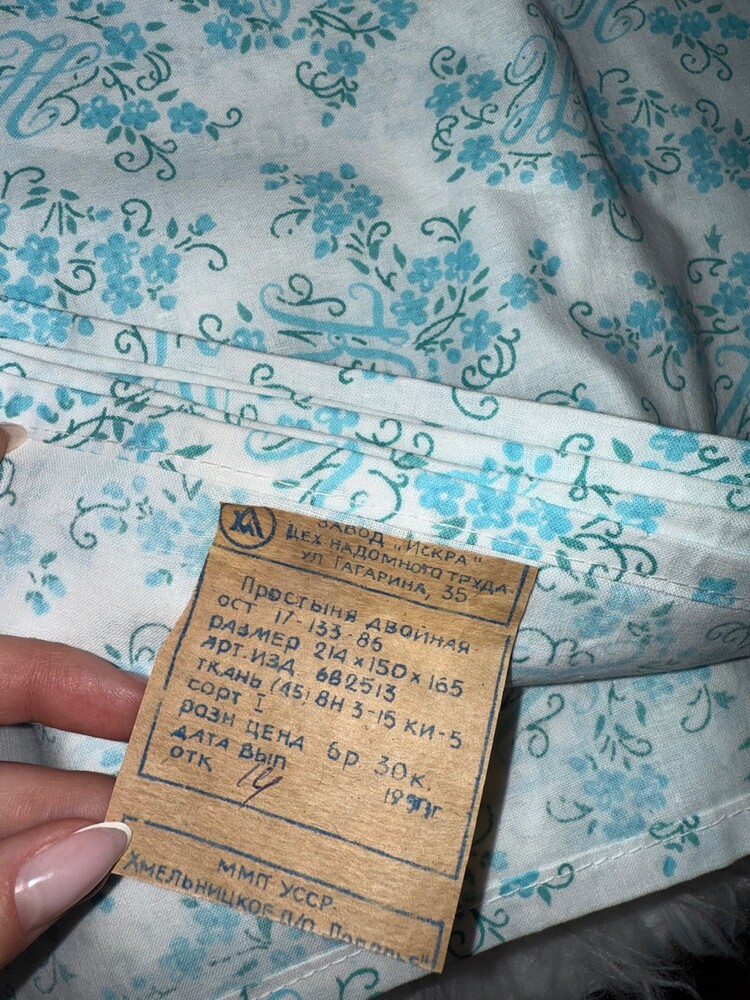 ЗАВОД „ИСКРА"
ЦЕХ НАДОМНОГО ТРУДА
УЛ ГАГАРИНА, 35
ПРОСТЫНЯ ДВОЙНАЯ
ОСТ 17-133-86
РАЗМЕР 214 х 150 х 165
АРТ. ИЗД 6В2513
ТКАНЬ (45) ВН 3-15 КИ-5
СОРТ I
РОЗН ЦЕНА 6 р. 30 к.
ДАТА ВЫП
ОТК 14
ММП УССР
ХМЕЛЬНИЦКОЕ П/О „Подолье"